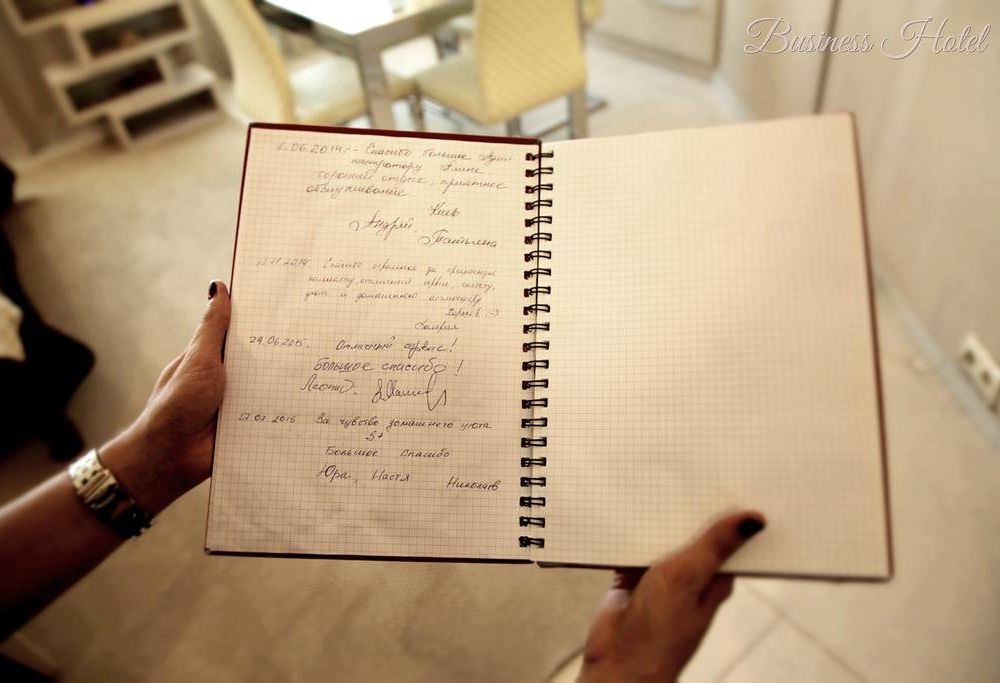 Business Hotel
2.06.2014г.- Спасибо большое Адми-
нистратору Алине
хороший отдых, приятное
обслуживание.
Киев
Андрей,
Татьяна
2014 Спасибо огромное за прекрасную
комнату, отличный сервис, чистоту,
уют и домашнюю атмосферу
Харьков :-)
Валерия
29.06.2015. Отличный сервис!
Большое спасибо!
Леонид.
27.07.2015 За чувство домашнего уюта
5+
Большое спасибо
Юра, Настя Николаев